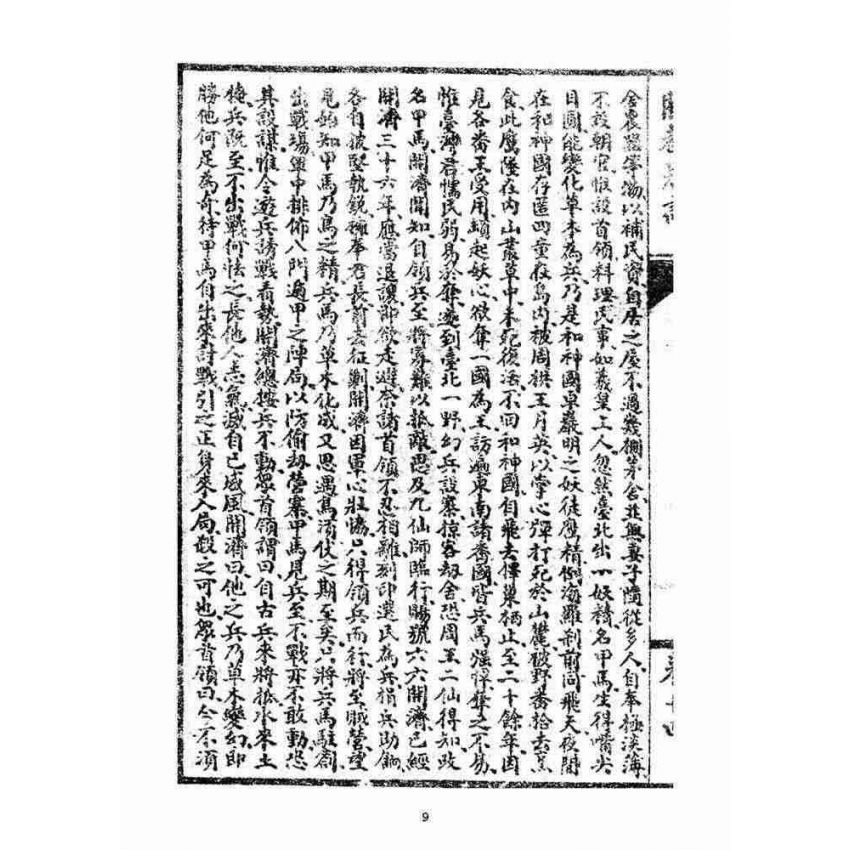 舍農器寧為以補民資自居之屋不過幾欄茅舍並無妻子隨從乡人自奉極淡薄
不設朝宦惟設首領料理民事如羲皇上人忽然臺北出一妖精名甲馬生得嘴尖
目圓能變化草木為兵乃是和神國卓嚴明之妖徒鷹精倒海羅剎前同飛天夜間
在和神國存匿四童在島內被周棋王月英以掌心彈打死於山麓被野番拾去烹
食此鷹墜在內山叢草中未死復活不回和神國自飛去擇巢栖止至二十餘年因
見各番王受用頓起妖心欲奪一國為王訪遍東南諸番國皆兵馬強悍奪之不易
惟臺灣君懦民弱易於奪遂到臺北一野幻兵設寨掠客劫舍恐周王二仙得知改
名甲馬開濟聞知自領兵至將寡難以抵敵思及九仙師臨行賜號六六開濟已經
開濟三十六年應當退讓即欲走避奈諸首領不忍相離刻即選民為兵捐兵助餉
各自披堅執銳擁奉君長前去征剿開濟因軍心壯協只得領兵而行將至賊營望
見始知甲馬乃鳥之精兵馬乃草木化成又思遇馬濟伏之期至矣只將兵馬駐劄
出戰場軍中排佈八門遁甲之陣局以防偷劫營寨甲馬見兵至不戰亦不敢動忠
其設謀惟令遊兵誘戰看勢開濟總按兵不動眾首領謂曰自古兵來將抵水來土
掩兵既至不出戰何怯之長他人志氣滅自己威風開濟曰他之兵乃草木變幻即
勝他何足為奇待甲馬自出來討戰引之正身來入局殺之可也眾首領曰今不須
卷十四
9